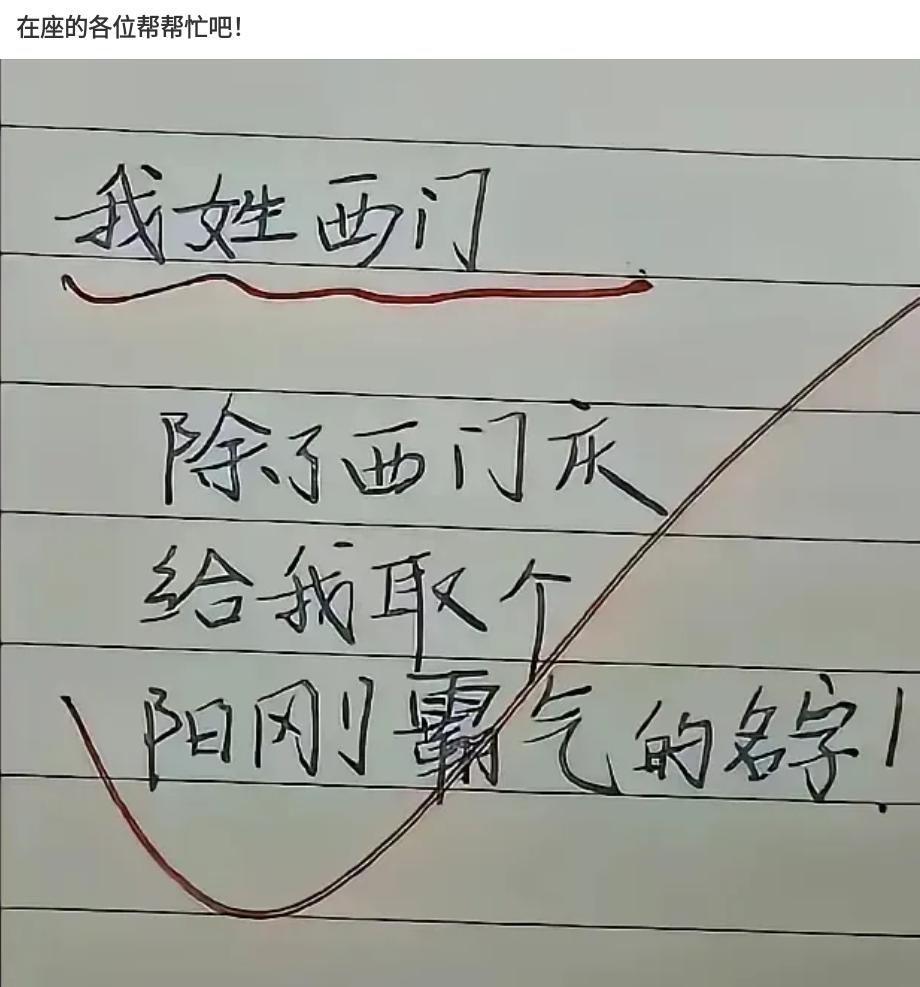 在座的各位帮帮忙吧！
我姓西门
除了西门庆
给我取个
阳刚霸气的名字！